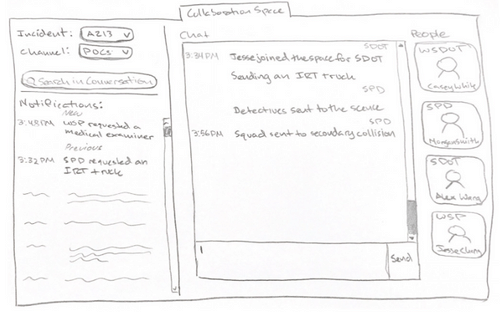 Collaboration Space
Incident: A213 v
Channel: POCs v
Search in Conversation
Notifications:
New
3:48PM WSP requested a
medical examiner
Previous
3:32PM SPD requested an
IRT truck
Chat
SDOT
3:34PM Jesse joined the space for SDOT
Sending an IRT truck
SPD
Detectives sent to the scene
SPD
3:56PM Squad sent to secondary collision
Send
People
WSDOT
Casey While
SPD
Morgan Smith
SDOT
Alex Wang
WSP
Jesse Chang